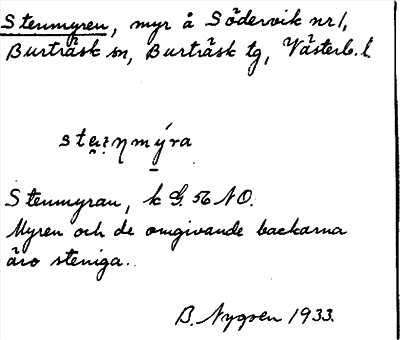 Stenmyren, myr å Södervik nr 1,
Burträsk sn, Burträsk tg, Västerb. l.
stein̥mýra
Stenmyran, k G. 56 NO.
Myren och de omgivande backarna
äro steniga.
B. Nygren 1933.